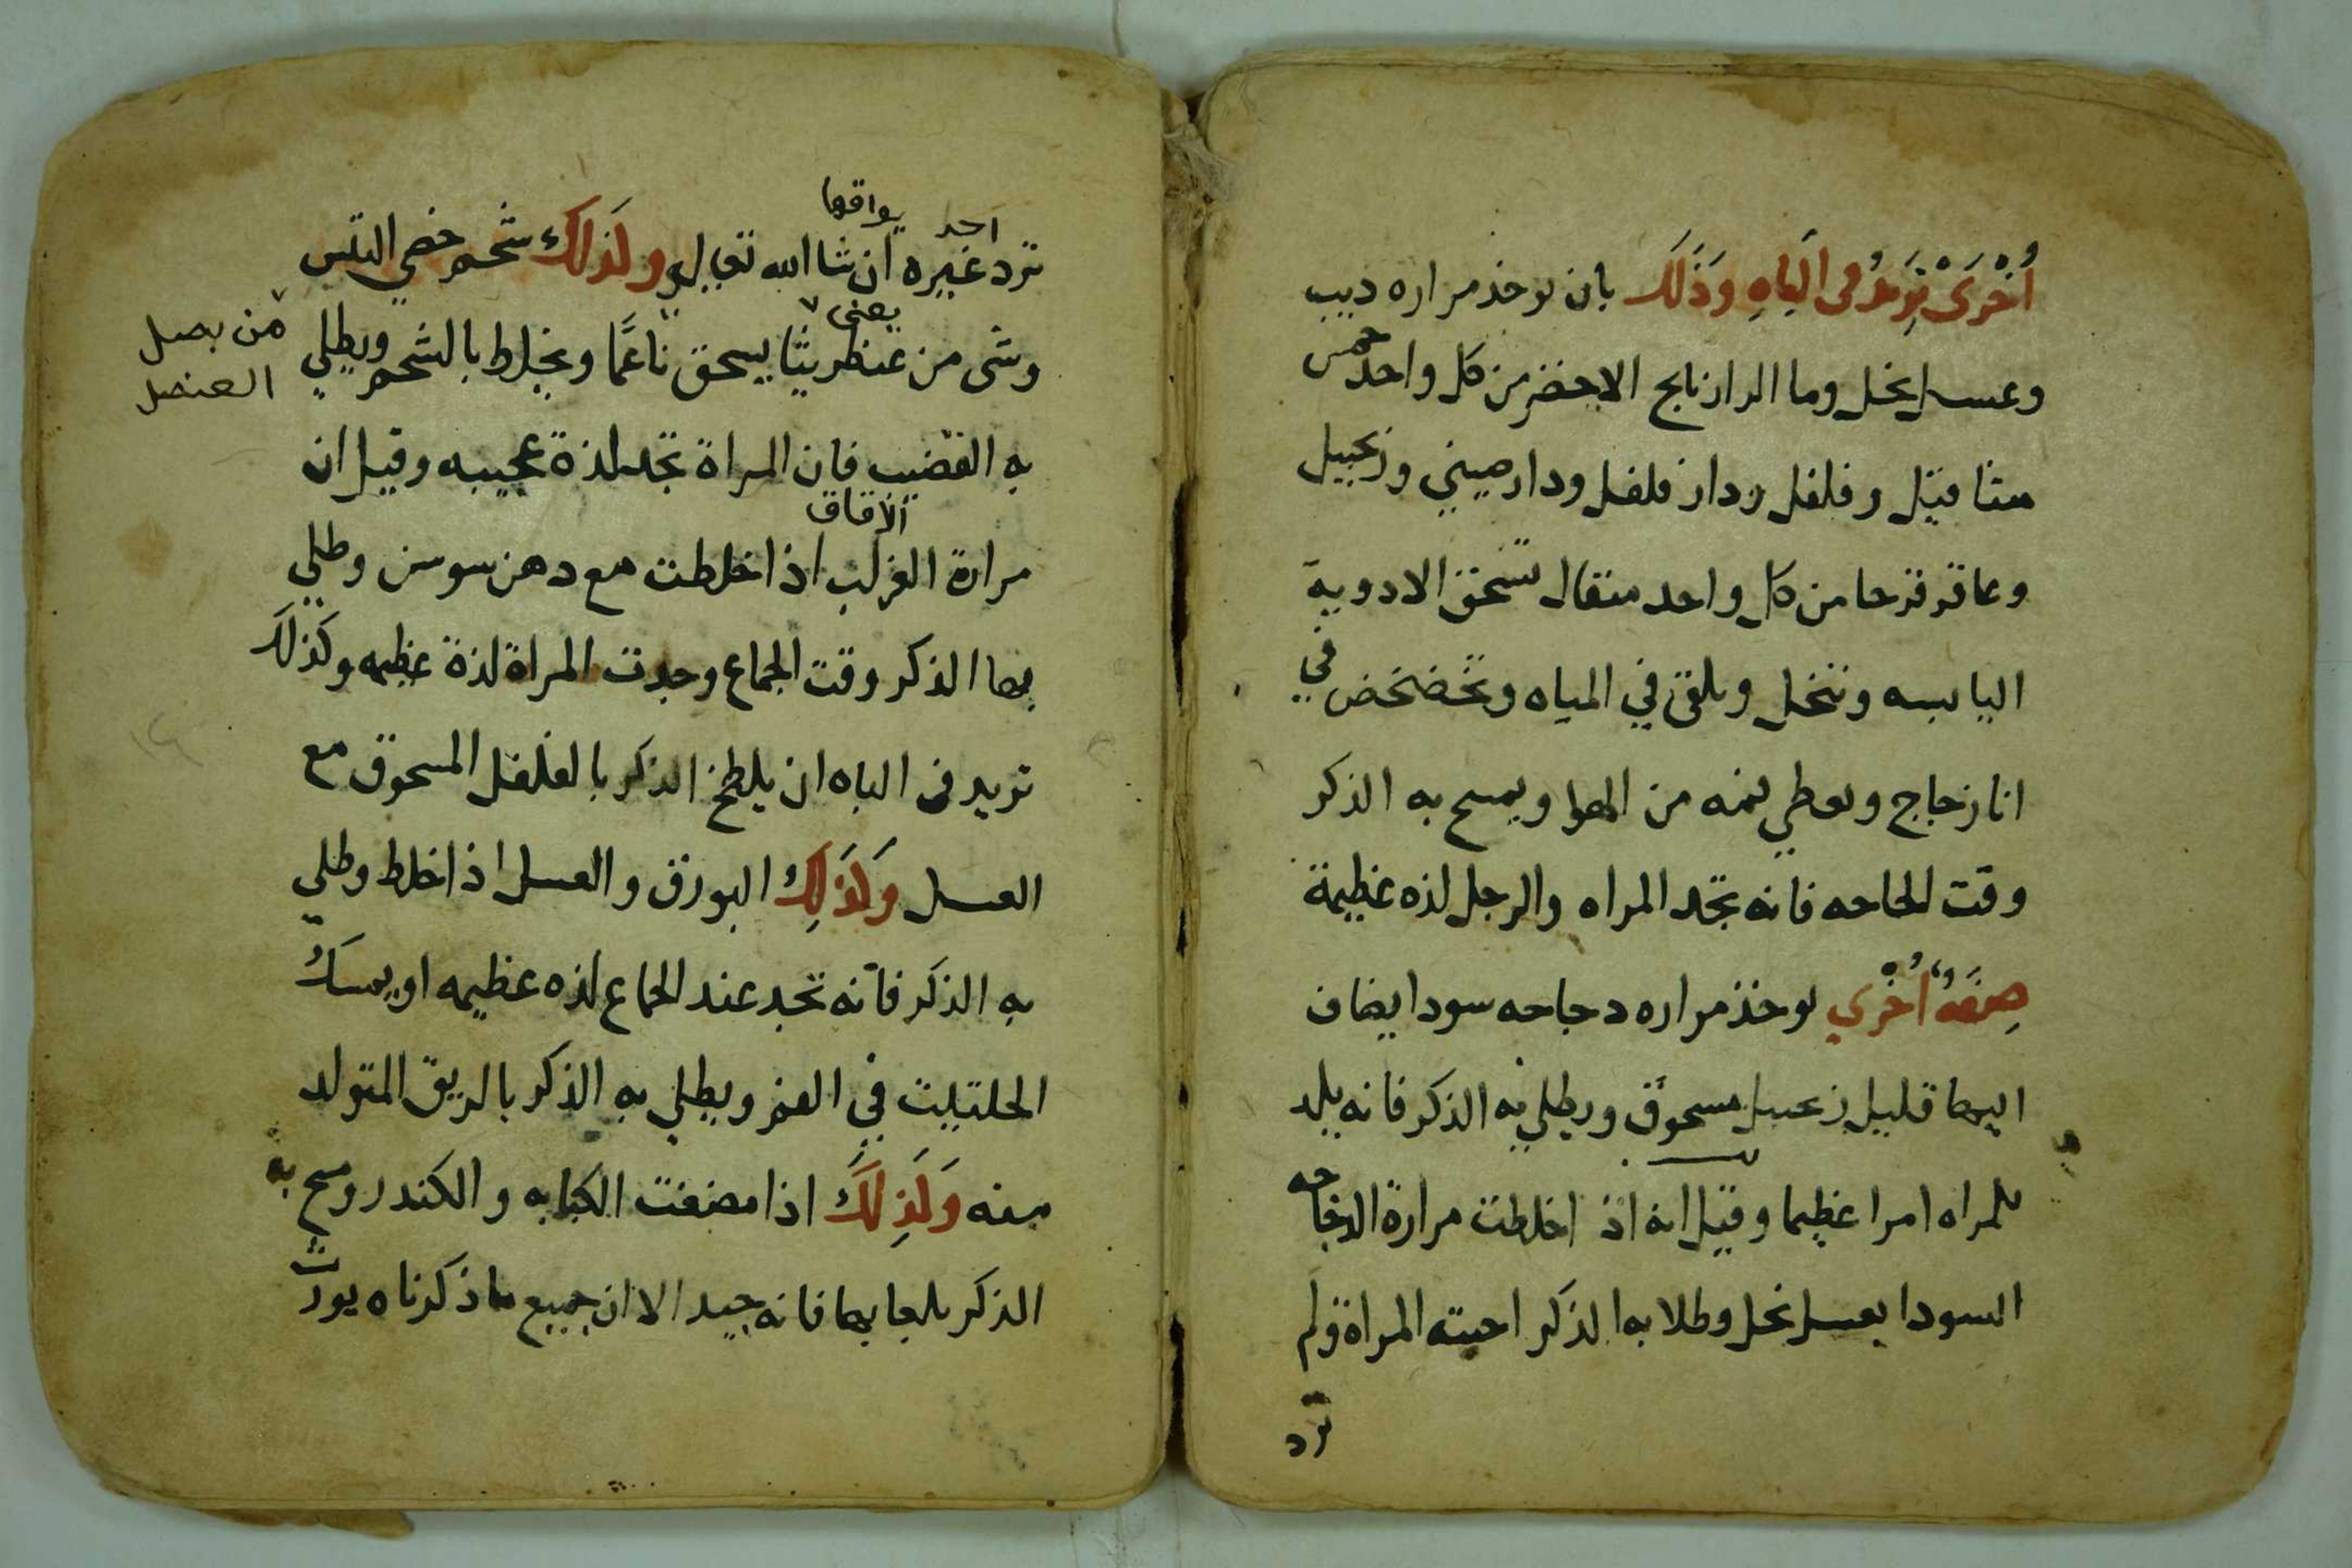 أُخْرَىْ تَزِيدُ فى اَلبَاهِ وَذَلَكَ بان توخذ مراره ديب
وعسل نخل وما الرازنايج الاخضر من كل واحد خمس
مثاقيل وفلفل ودار فلفل ودار صيني وزنجبيل
وعاقر قرحا من كل واحد مثقال تسحق الادوية
اليابسه وتنخل وتلقى في المياه وتخضخض في
انا زجاج ويعطي فمه من الهوا ويمسح به الذكر
وقت الحاجه فانه تجد المراه والرجل لذه عظيمة
صِفَةُ اُخْرَي توخذ مراره دجاجه سودا يضاف
اليها قليل زنجبيل مسحوق ويطلي به الذكر فانه يلد
للمراه امرا عظيما وقيل انه اذ اخلطت مرارة الدجاجه
السودا بعسل نخل وطلا به الذكر احبته المراة ولم
ترد
احد يواقعها
ترد غيره ان شا الله تعالى وكَذلكَ شحم خصي التيس
يعني
وشى من عنظريثا يسحق ناعمًا ويخلط بالشحم ويطلي
من بصل
العنصل
به القضيب فان المراة تجد لذة عجيبه وقيل ان
الاقاق
مرارة الغراب اذا خلطت مع دهن سوسن وطلي
بها الذكر وقت الجماع وجدت المراة لذة عظيمه وكذلك
تزيد فى الباه ان يلطخ الذكر بالفلفل المسحوق مع
العسل وَكَذَلِكَ البورق والعسل اذا خلط وطلي
به الذكر فانه تجد عند الجماع لذه عظيمه او يمسك
الحلتيت في الفم ويطلي به الذكر بالريق المتولد
منه وَكَذِلَكَ اذا مضغت الكبابه والكندر ومسح به
الذكر بلعابهما فانه جيد الا ان جميع ما ذكرناه يورث